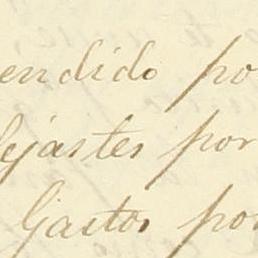 endido po
ejastes por
Gastos por